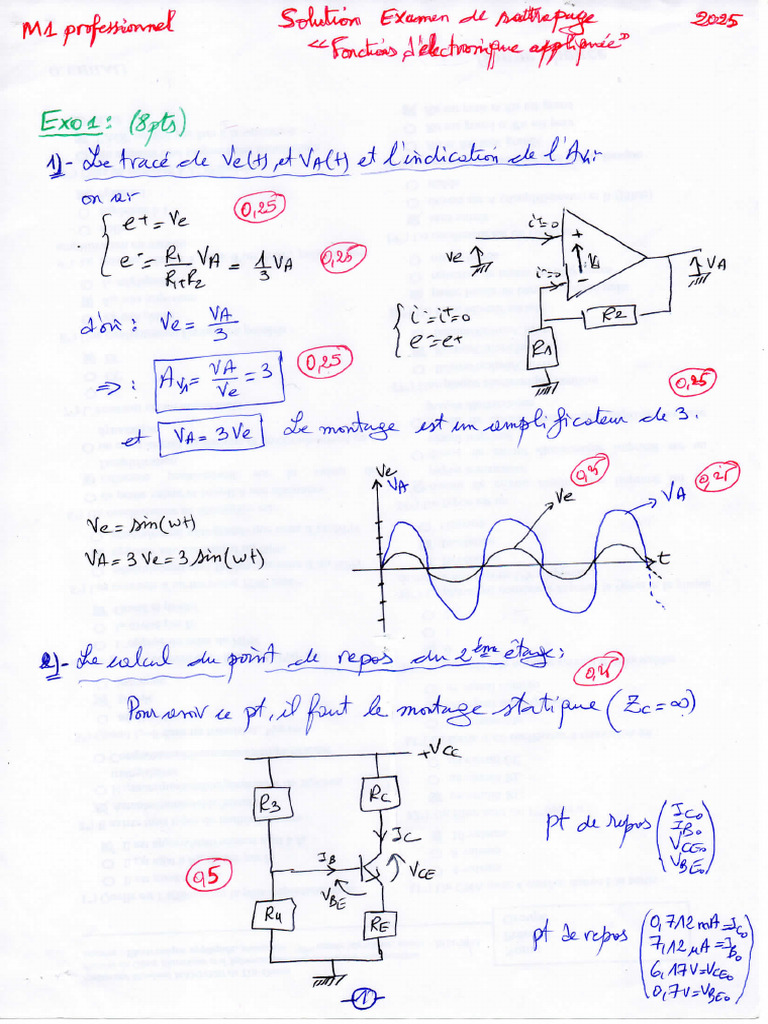 M1 professionnel
Solution Examen de rattrapage
2025
"Fonctions d'électronique appliquée"
Exo1: (8pts)
1)- Le tracé de Ve(t), et VA(t) et l'indication de l'Av1
on a
e+ = Ve
0,25
e- = R1/(R1+R2) VA = 1/3 VA
0,25
d'où : Ve = VA/3
=> : Av1 = VA/Ve = 3
0,25
i+=0
+
Ve
Vd
VA
i-=0
-
R2
R1
i-=i+=0
e-=e+
0,25
et VA = 3Ve Le montage est un amplificateur de 3.
Ve
VA
Ve
0,25
VA
0,25
t
Ve = sin(wt)
VA = 3Ve = 3 sin(wt)
2)- Le calcul du point de repos du 2ème étage:
0,25
Pour avoir ce pt, il faut le montage statique (Zc = ∞)
+VCC
R3
RC
IC
IB
VCE
VBE
0,5
R4
RE
pt de repos (IC0
IB0
VCE0
VBE0)
pt de repos (0,712 mA = IC0
7,12 µA = IB0
6,17V = VCE0
0,7V = VBE0)
1